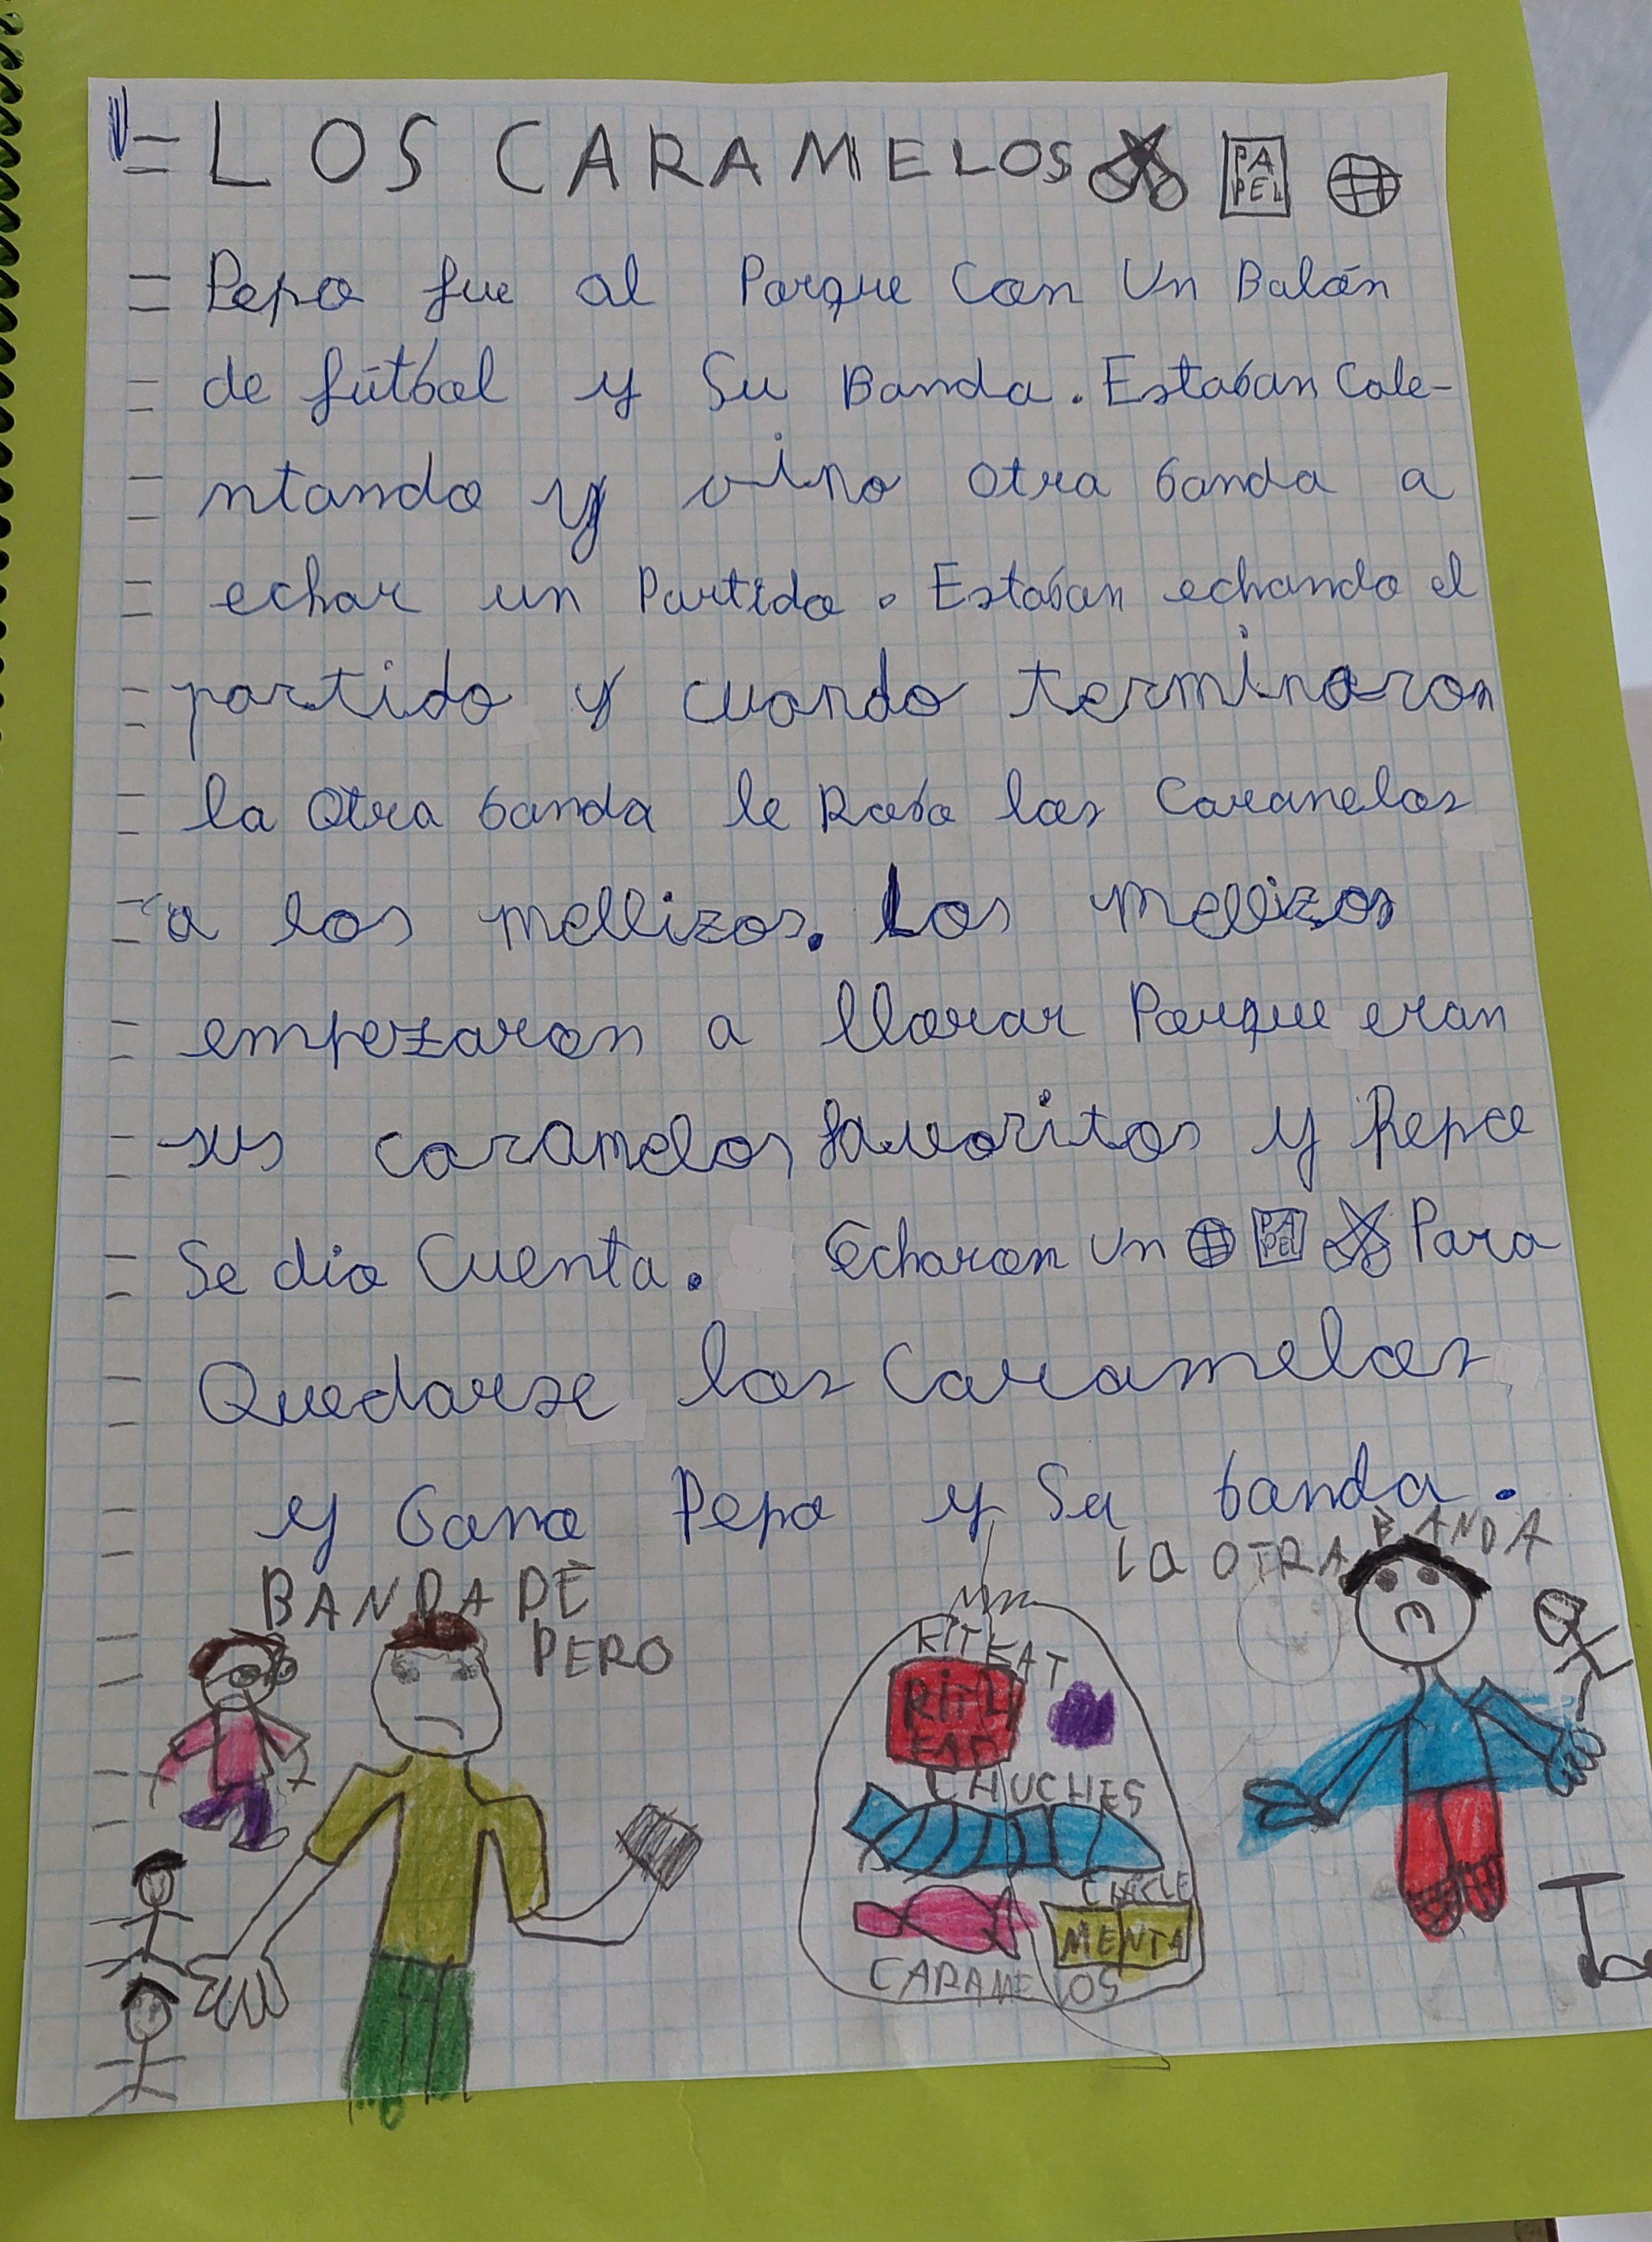 LOS CARAMELOS PAPEL
Pepo fue al Parque Con Un Balón
de fútbol y Su Banda. Estaban Cale-
ntando y vino otra banda a
echar un Partido. Estaban echando el
partido y cuando terminaron
la Otra banda le Robo los Caranelos
a los mellizos. Los mellizos
empezaron a llorar Porque eran
sus caramelos favoritos y Pepo
Se dio Cuenta. Echaron Un PAPEL Para
Quedarse los Caramelos
y Gano Pepo y Su banda.
BANDA DE
PEPO
LA OTRA BANDA
KIT KAT
CHUCHES
CHICLE
MENTA
CARAMELOS